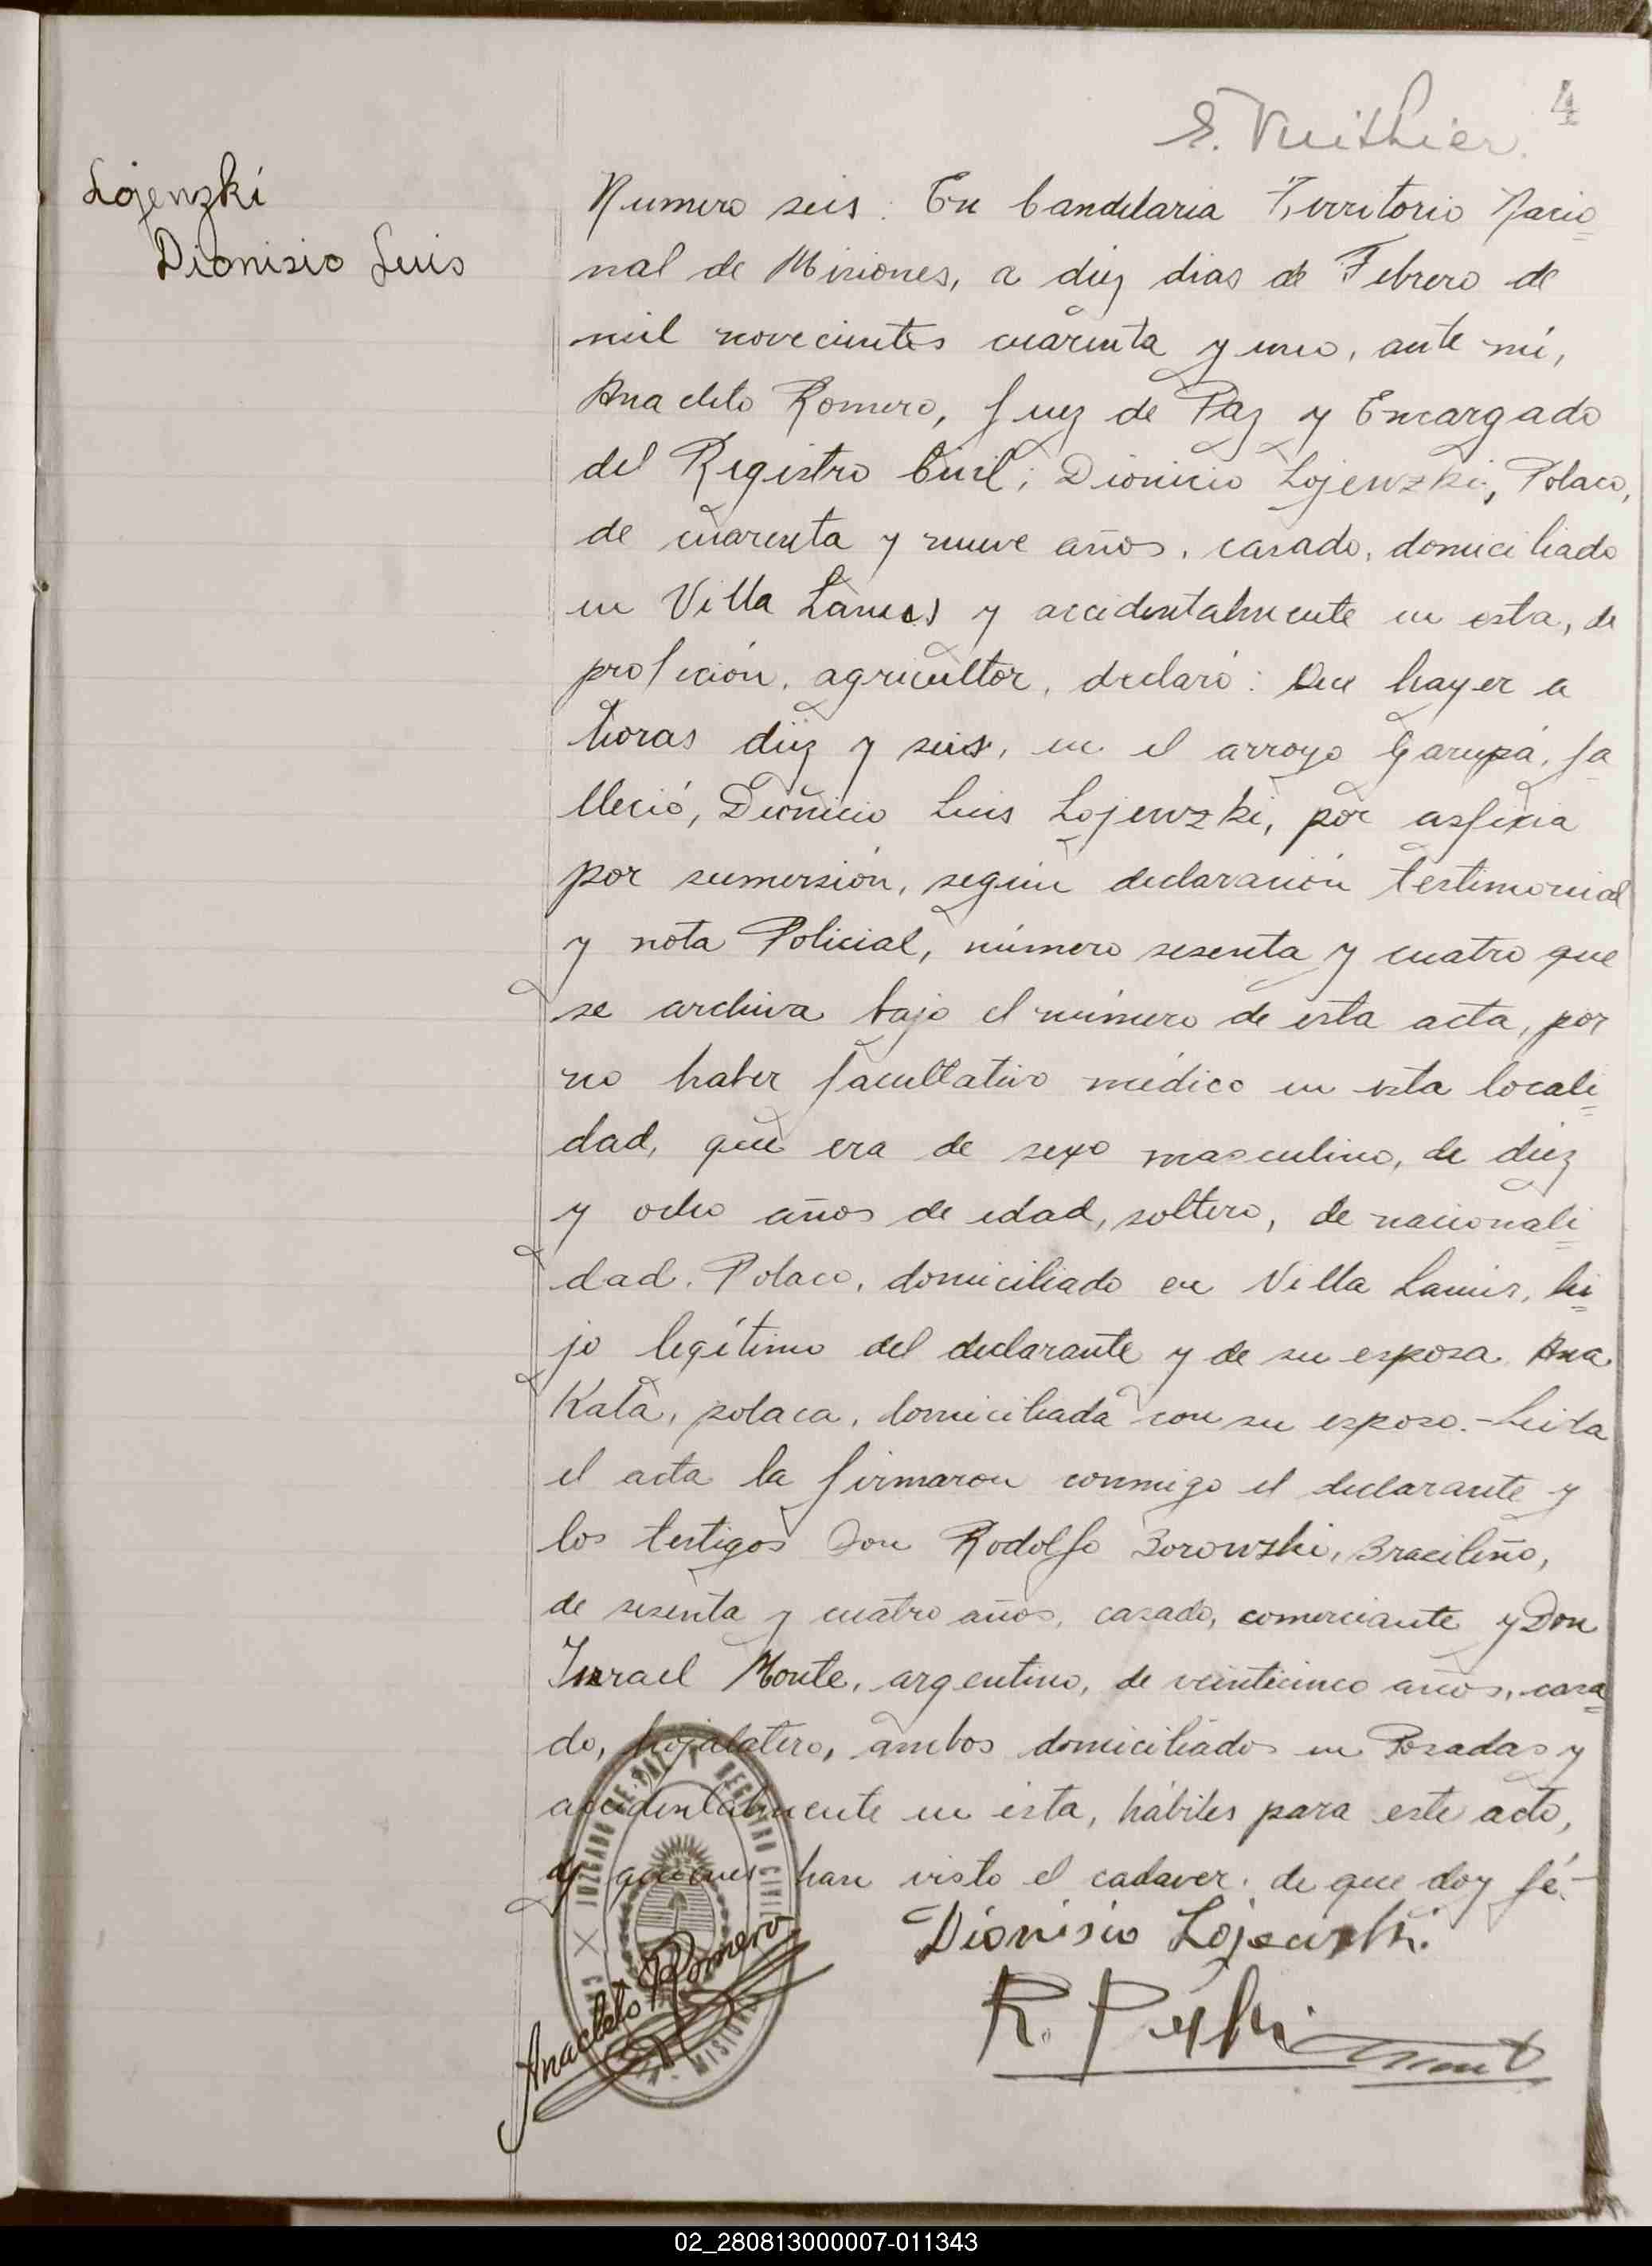 4
E. Vuithier.
Lojenzki
Dionisio Luis
Numero seis: En Candelaria Territorio Nacio
nal de Misiones, a diez dias de Febrero de
mil novecientos cuarenta y uno, ante mí,
Anacleto Romero, Juez de Paz y Encargado
del Registro Civil; Dionicio Lojewzki, Polaco,
de cuarenta y nueve años, casado, domiciliado
en Villa Lanus y accidentalmente en esta, de
profeción, agricultor, declaró: Que hayer a
horas diez y seis, en el arroyo Garupá, fa
lleció, Dionicio Luis Lojewzki, por asfixia
por sumersión, según declaración testimonial
y nota Policial, número sesenta y cuatro que
se archiva bajo el número de esta acta, por
no haber facultativo médico en esta locali
dad, que era de sexo masculino, de diez
y ocho años de edad, soltero, de nacionali
dad, Polaco, domiciliado en Villa Lanus, hi
jo legítimo del declarante y de su esposa Ana
Kata, polaca, domiciliada con su esposo.- Leida
el acta la firmaron conmigo el declarante y
los testigos Don Rodolfo Borowski, Braciliño,
de sesenta y cuatro años, casado, comerciante y Don
Israel Monte, argentino, de veinticinco años, casa
do, hojalatero, ambos domiciliados en Posadas y
accidentalmente en ésta, hábiles para este acto,
y quienes han visto el cadaver. de que doy fé.-
Dionisio Lojewski.
Anacleto Romero
JUZGADO DE PAZ Y REGISTRO CIVIL
MISIONES
02_280813000007-011343